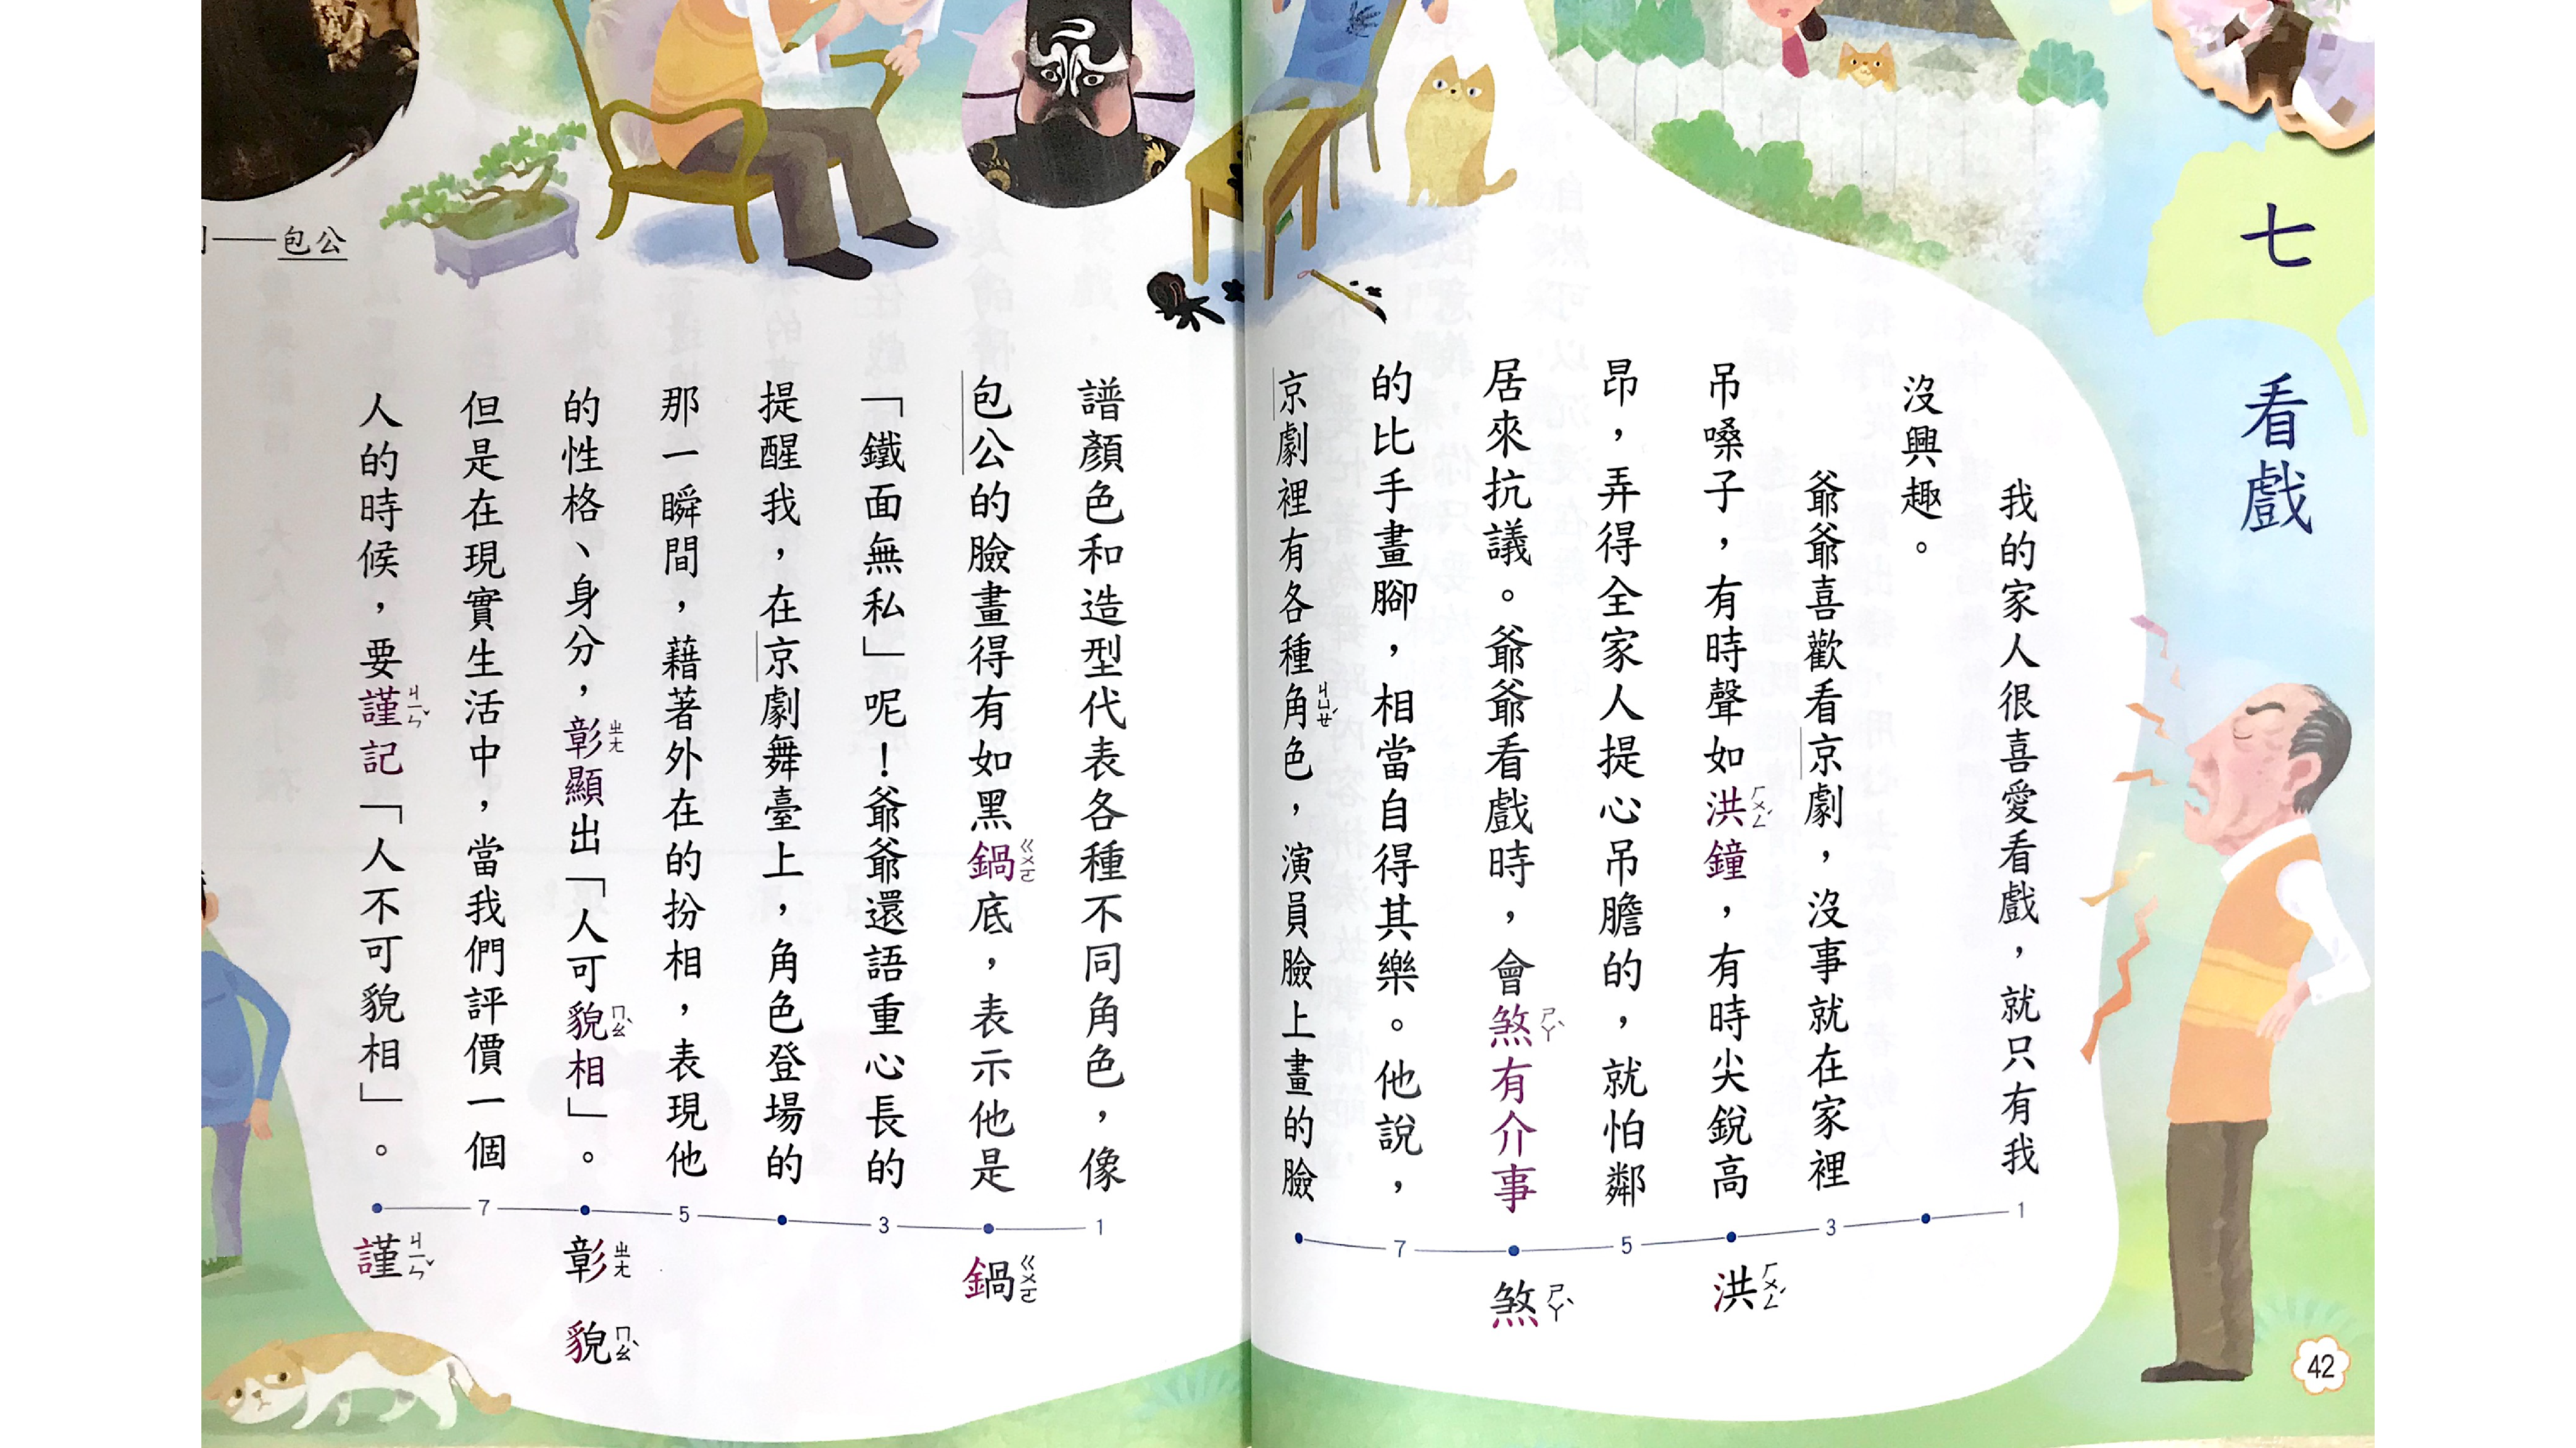 七 看戲
我的家人很喜愛看戲，就只有我
沒興趣。
爺爺喜歡看京劇，沒事就在家裡
吊嗓子，有時聲如洪鐘，有時尖銳高
昂，弄得全家人提心吊膽的，就怕鄰
居來抗議。爺爺看戲時，會煞有介事
的比手畫腳，相當自得其樂。他說，
京劇裡有各種角色，演員臉上畫的臉
ㄏㄨㄥˊ
ㄕㄚˋ
ㄐㄩㄝˊ
1
3
5
7
洪ㄏㄨㄥˊ
煞ㄕㄚˋ
42
譜顏色和造型代表各種不同角色，像
包公的臉畫得有如黑鍋底，表示他是
「鐵面無私」呢！爺爺還語重心長的
提醒我，在京劇舞臺上，角色登場的
那一瞬間，藉著外在的扮相，表現他
的性格、身分，彰顯出「人可貌相」。
但是在現實生活中，當我們評價一個
人的時候，要謹記「人不可貌相」。
ㄍㄨㄛ
ㄓㄤ
ㄇㄠˋ
ㄐㄧㄣˇ
1
3
5
7
鍋ㄍㄨㄛ
彰ㄓㄤ
貌ㄇㄠˋ
謹ㄐㄧㄣˇ
——包公